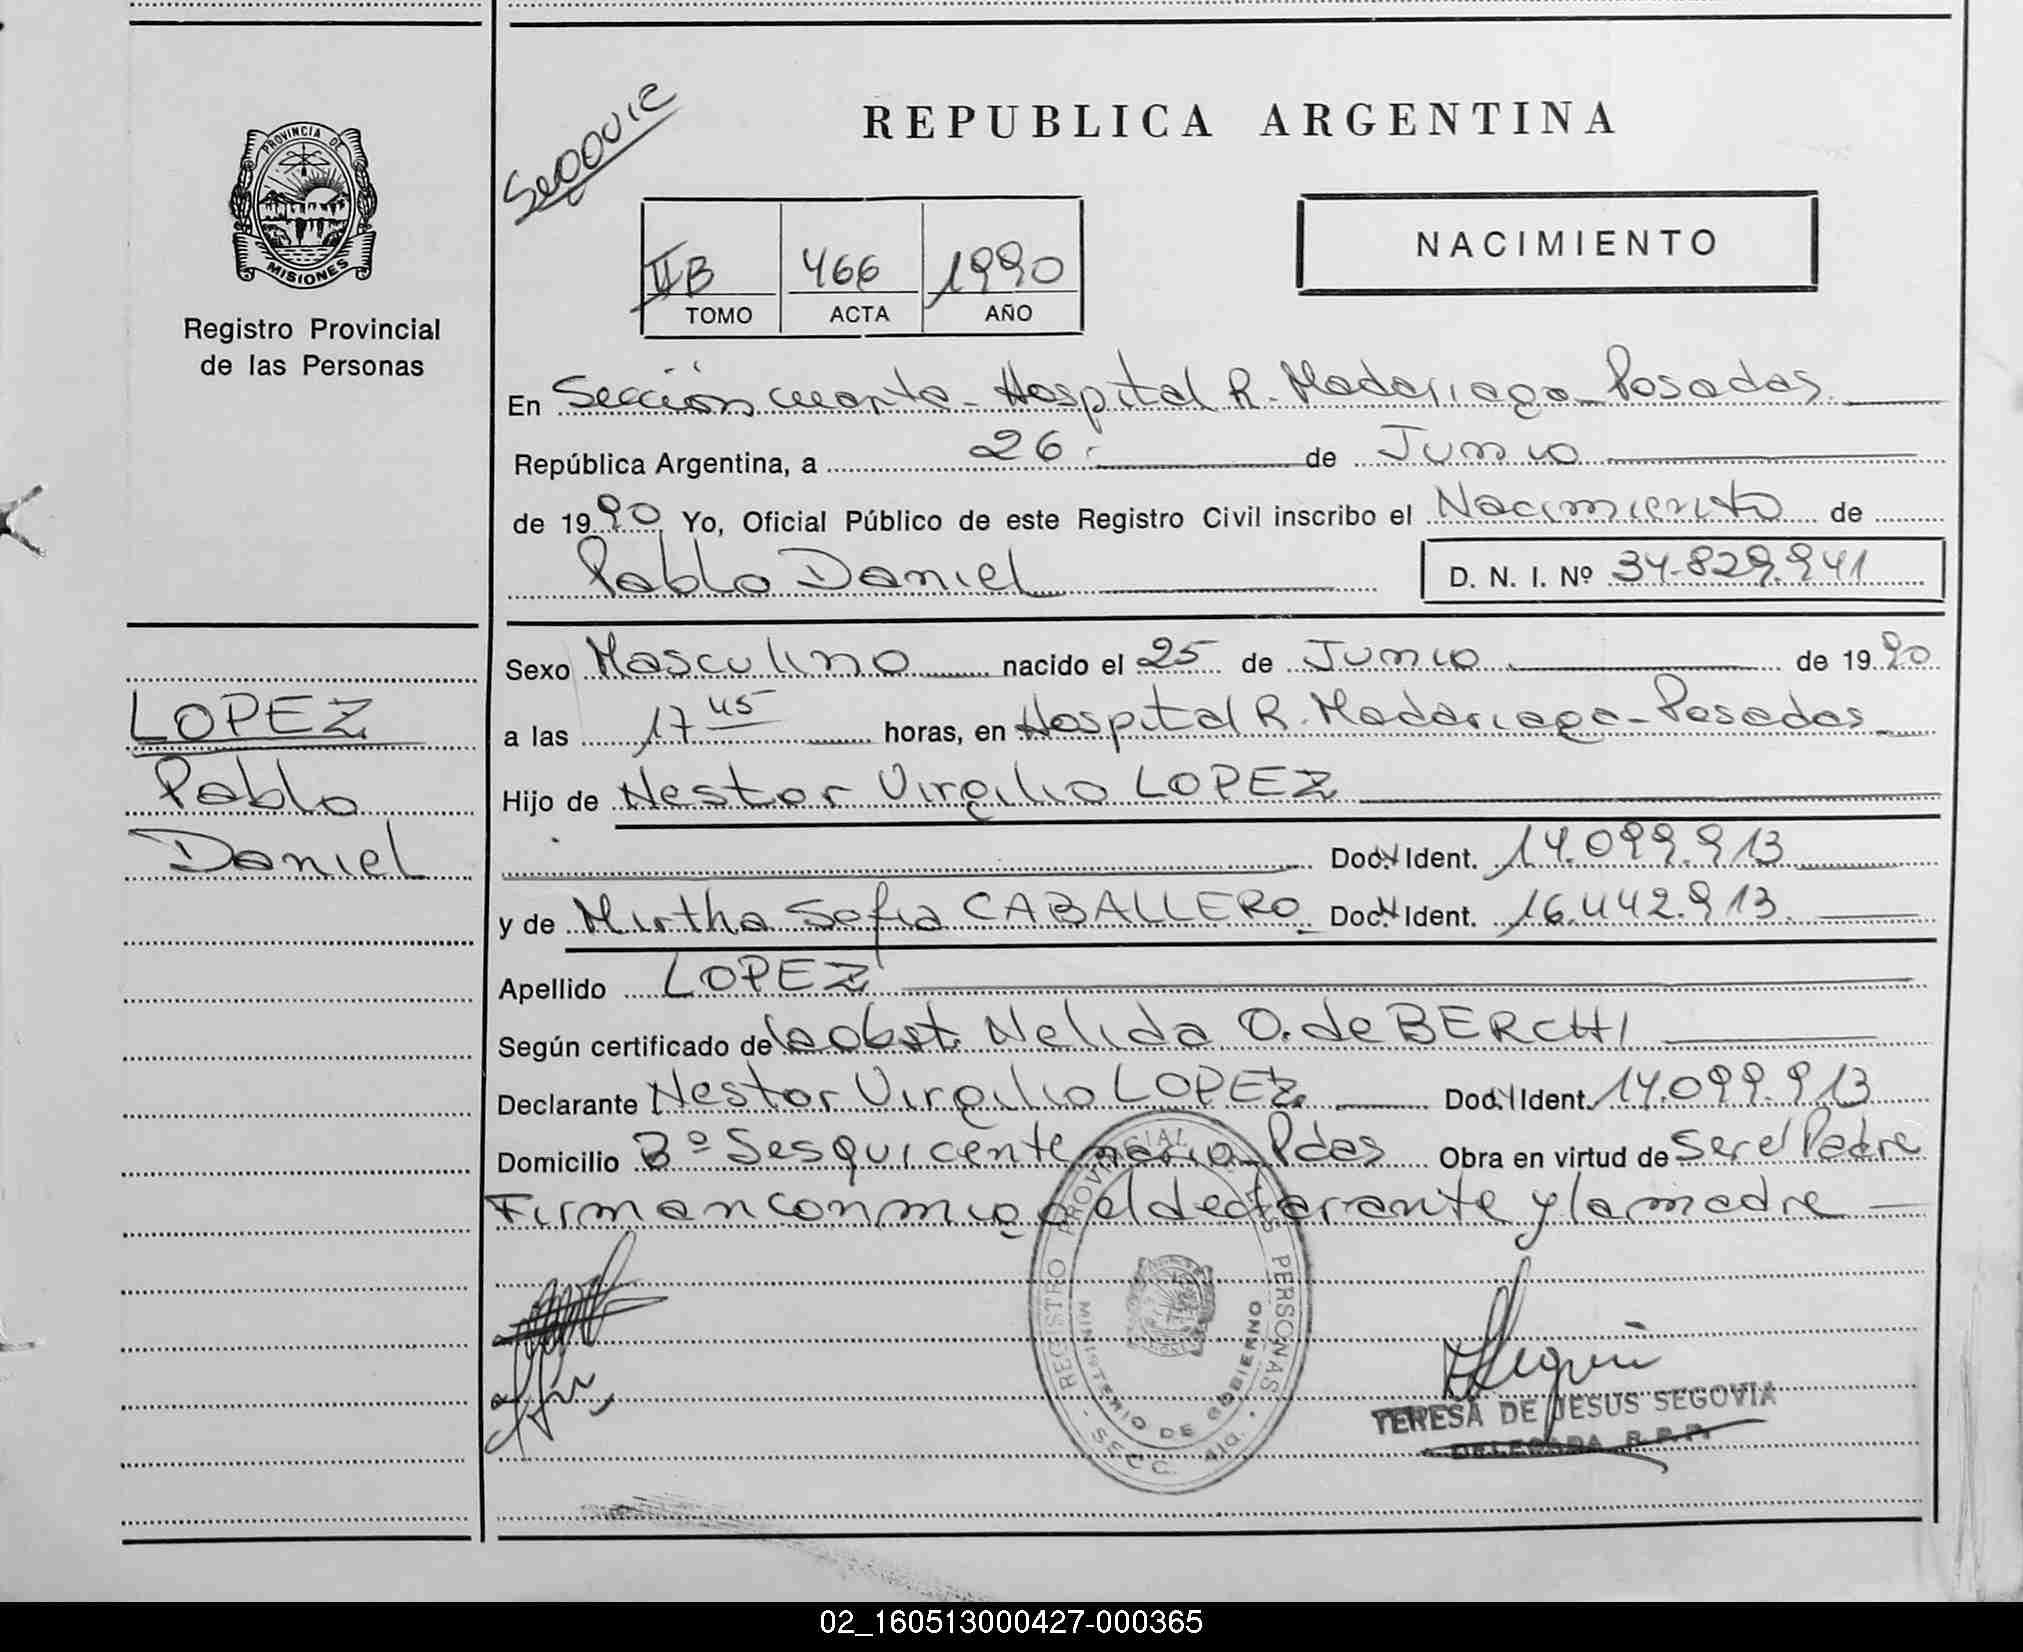 PROVINCIA DE
MISIONES
Registro Provincial
de las Personas
LOPEZ
Pablo
Daniel
Segovia
REPUBLICA ARGENTINA
II B 466 1990
TOMO ACTA AÑO
NACIMIENTO
En Sección cuarta - Hospital R. Madariaga - Posadas
República Argentina, a 26 de Junio
de 1990 Yo, Oficial Público de este Registro Civil inscribo el Nacimiento de
Pablo Daniel D. N. I. Nº 34.829.941
Sexo Masculino nacido el 25 de Junio de 1990
a las 17 45 horas, en Hospital R. Madariaga - Posadas
Hijo de Nestor Virgilio LOPEZ
Doc. Ident. 14.099.913
y de Mirtha Sofia CABALLERO Doc. Ident. 16.442.913
Apellido LOPEZ
Según certificado de la obst. Nelida O. de BERCHI
Declarante Nestor Virgilio LOPEZ Doc. Ident. 14.099.913
Domicilio Bº Sesquicentenario Pdas Obra en virtud de Ser el Padre
Firman conmigo el declarante y la madre
REGISTRO PROVINCIAL DE LAS PERSONAS
MINISTERIO DE GOBIERNO
- SECC. 4ta. -
TERESA DE JESUS SEGOVIA
DELEGADA R.P.P.
02_160513000427-000365